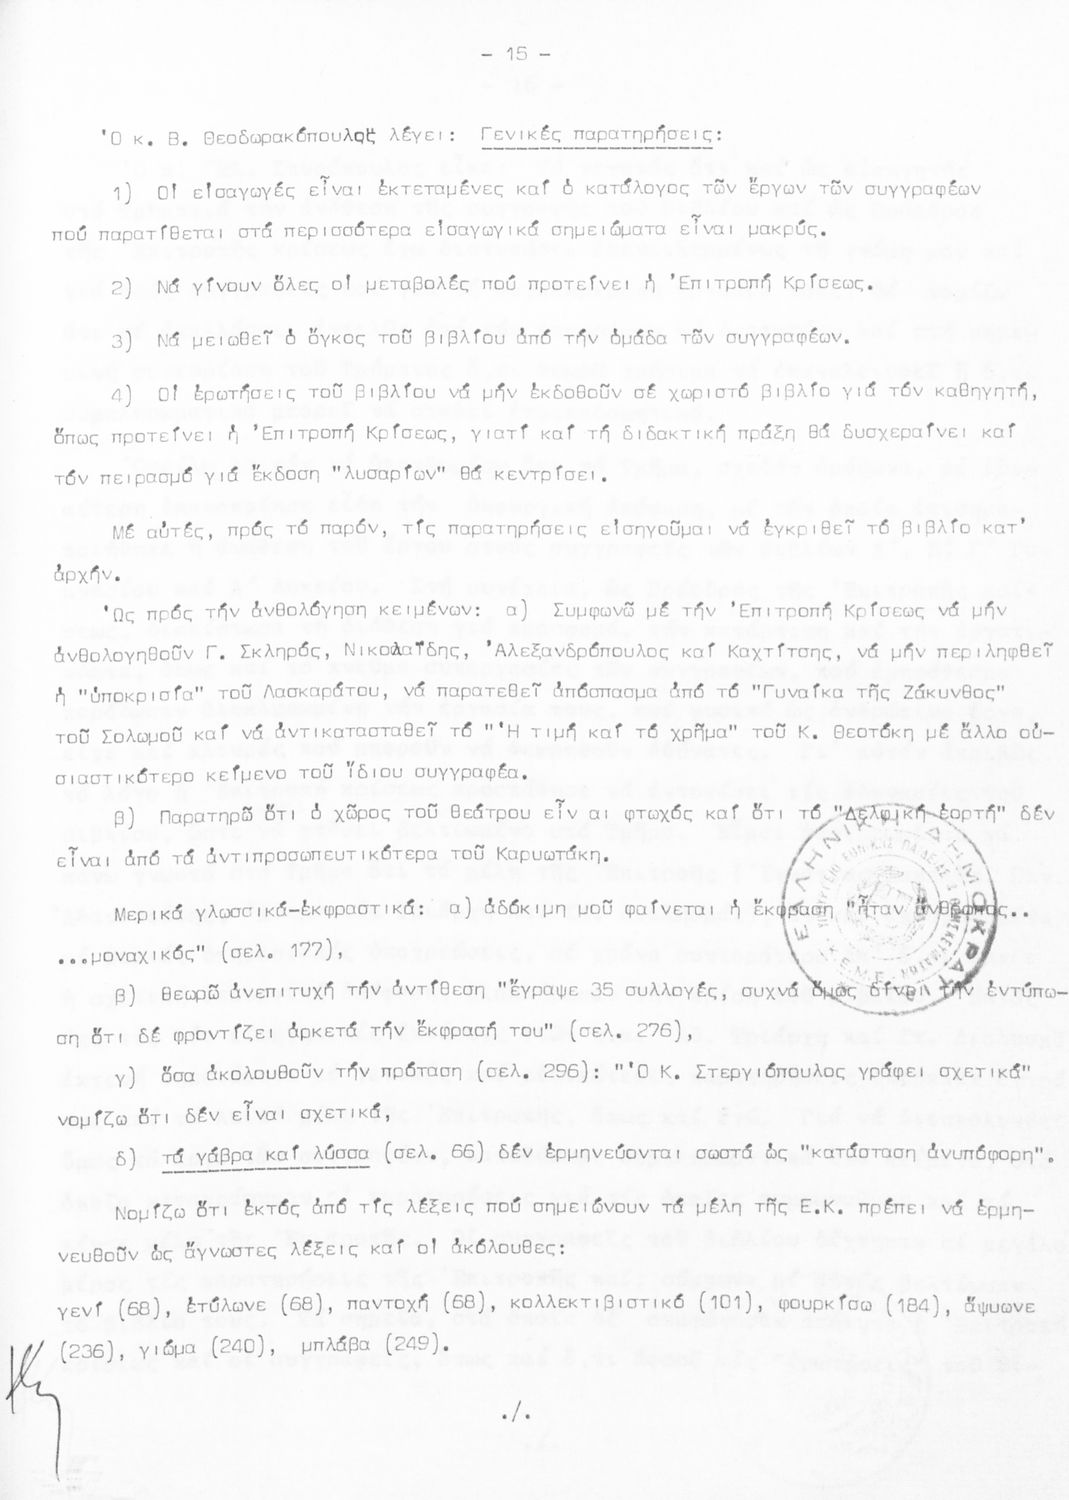 - 15 -
Ὁ κ. Β. Θεοδωρακόπουλος λέγει: Γενικές παρατηρήσεις:
1) Οἱ εἰσαγωγές εἶναι ἐκτεταμένες καί ὁ κατάλογος τῶν ἔργων τῶν συγγραφέων
πού παρατίθεται στά περισσότερα εἰσαγωγικά σημειώματα εἶναι μακρύς.
2) Νά γίνουν ὅλες οἱ μεταβολές πού προτείνει ἡ Ἐπιτροπή Κρίσεως.
3) Νά μειωθεῖ ὁ ὄγκος τοῦ βιβλίου ἀπό τήν ὁμάδα τῶν συγγραφέων.
4) Οἱ ἐρωτήσεις τοῦ βιβλίου νά μήν ἐκδοθοῦν σέ χωριστό βιβλίο γιά τόν καθηγητή,
ὅπως προτείνει ἡ Ἐπιτροπή Κρίσεως, γιατί καί τή διδακτική πράξη θά δυσχεραίνει καί
τόν πειρασμό γιά ἔκδοση "λυσαρίων" θά κεντρίσει.
Μέ αὐτές, πρός τό παρόν, τίς παρατηρήσεις εἰσηγοῦμαι νά ἐγκριθεῖ τό βιβλίο κατ'
ἀρχήν.
Ὡς πρός τήν ἀνθολόγηση κειμένων: α) Συμφωνῶ μέ τήν Ἐπιτροπή Κρίσεως νά μήν
ἀνθολογηθοῦν Γ. Σκληρός, Νικολαΐδης, Ἀλεξανδρόπουλος καί Καχτίτσης, νά μήν περιληφθεῖ
ἡ "ὑποκρισία" τοῦ Λασκαράτου, νά παρατεθεῖ ἀπόσπασμα ἀπό τό "Γυναίκα τῆς Ζάκυνθος"
τοῦ Σολωμοῦ καί νά ἀντικατασταθεῖ τό "Ἡ τιμή καί τό χρῆμα" τοῦ Κ. Θεοτόκη μέ ἄλλο οὐ-
σιαστικότερο κείμενο τοῦ ἴδιου συγγραφέα.
β) Παρατηρῶ ὅτι ὁ χῶρος τοῦ θεάτρου εἶν αι φτωχός καί ὅτι τό "Δελφική ἑορτή" δέν
εἶναι ἀπό τά ἀντιπροσωπευτικότερα τοῦ Καρυωτάκη.
Μερικά γλωσσικά-ἐκφραστικά: α) ἀδόκιμη μοῦ φαίνεται ἡ ἔκφραση "ἦταν ἄνθρωπος..
...μοναχικός" (σελ. 177),
β) θεωρῶ ἀνεπιτυχή τήν ἀντίθεση "ἔγραψε 35 συλλογές, συχνά ὅμως δίνει τήν ἐντύπω-
ση ὅτι δέ φροντίζει ἀρκετά τήν ἔκφρασή του" (σελ. 276),
γ) ὅσα ἀκολουθοῦν τήν πρόταση (σελ. 296): "Ὁ Κ. Στεργιόπουλος γράφει σχετικά"
νομίζω ὅτι δέν εἶναι σχετικά,
δ) τά γάβρα καί λύσσα (σελ. 66) δέν ἑρμηνεύονται σωστά ὡς "κατάσταση ἀνυπόφορη".
Νομίζω ὅτι ἐκτός ἀπό τίς λέξεις πού σημειώνουν τά μέλη τῆς Ε.Κ. πρέπει νά ἑρμη-
νευθοῦν ὡς ἄγνωστες λέξεις καί οἱ ἀκόλουθες:
γενί (68), ἐτύλωνε (68), παντοχή (68), κολλεκτιβιστικό (101), φουρκίσω (184), ἄψυωνε
(236), γιόμα (240), μπλάβα (249).
./.
ΕΛΛΗΝΙΚΗ ΔΗΜΟΚΡΑΤΙΑ
ΥΠΟΥΡΓΕΙΟ ΕΘΝΙΚΗΣ ΠΑΙΔΕΙΑΣ & ΘΡΗΣΚΕΥΜΑΤΩΝ
Κ.Ε.Μ.Ε.